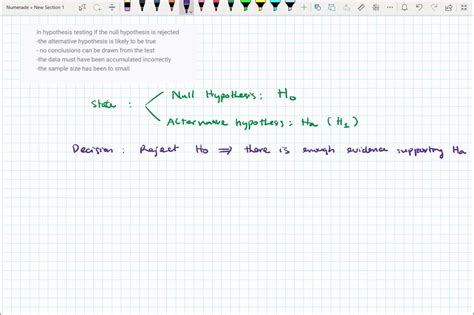 Numerade » New Section 1
in hypothesis testing if the null hypothesis is rejected
-the alternative hypothesis is likely to be true
- no conclusions can be drawn from the test
-the data must have been accumulated incorrectly
-the sample size has been to small
Null Hypothesis: H0
State :
Alternative hypothesis: Ha (H1)
Decision: Reject H0 ⇒ there is enough evidence supporting Ha